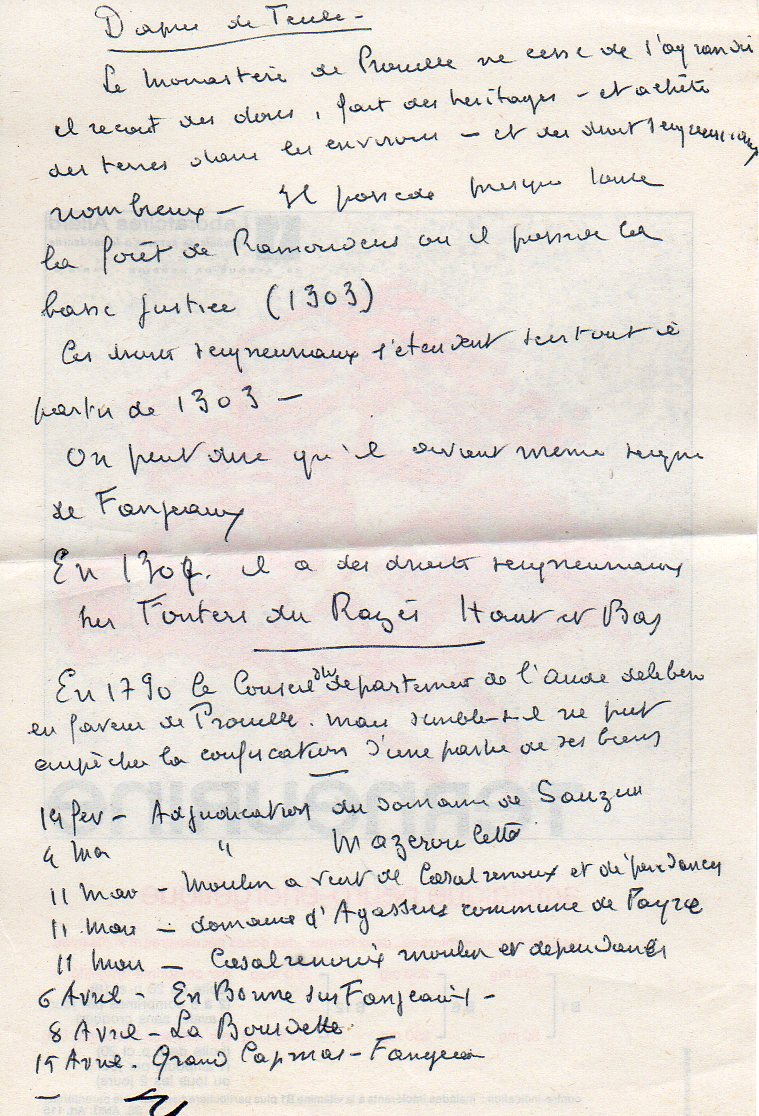 D'apres de Teule -
Le Monastère de Prouille ne cesse de s'agrandir
il reçoit des dons, fait des héritages - et achète
des terres dans les environs - et des droits seigneuriaux
nombreux - Il possede presque toute
la forêt de Ramondens ou il possede la
basse justice (1303)
Ces droits seigneuriaux s'étendent surtout à
partir de 1303 -
On peut dire qu'il devient meme seigneur
de Fanjeaux
En 130 . il a des droits seigneuriaux
sur Fonters du Razès Haut et Bas
En 1790 le Conseil du departement de l'Aude delibere
en faveur de Prouille. mais semble-t-il ne put
empêcher la confiscation d'une partie de ses biens
19 fev - Adjudication du domaine de Sauzens
4 Mar " Mazeroulette
11 Mars - Moulin a vent de Casalrenoux et dépendances
11 Mars - domaine d'Agassens commune de Payra
11 Mars - Casalrenoux moulin et dependances
6 Avril - En Bonne sur Fanjeaux -
8 Avril - La Bourdette
15 Avril. Grand Capmas - Fanjeaux